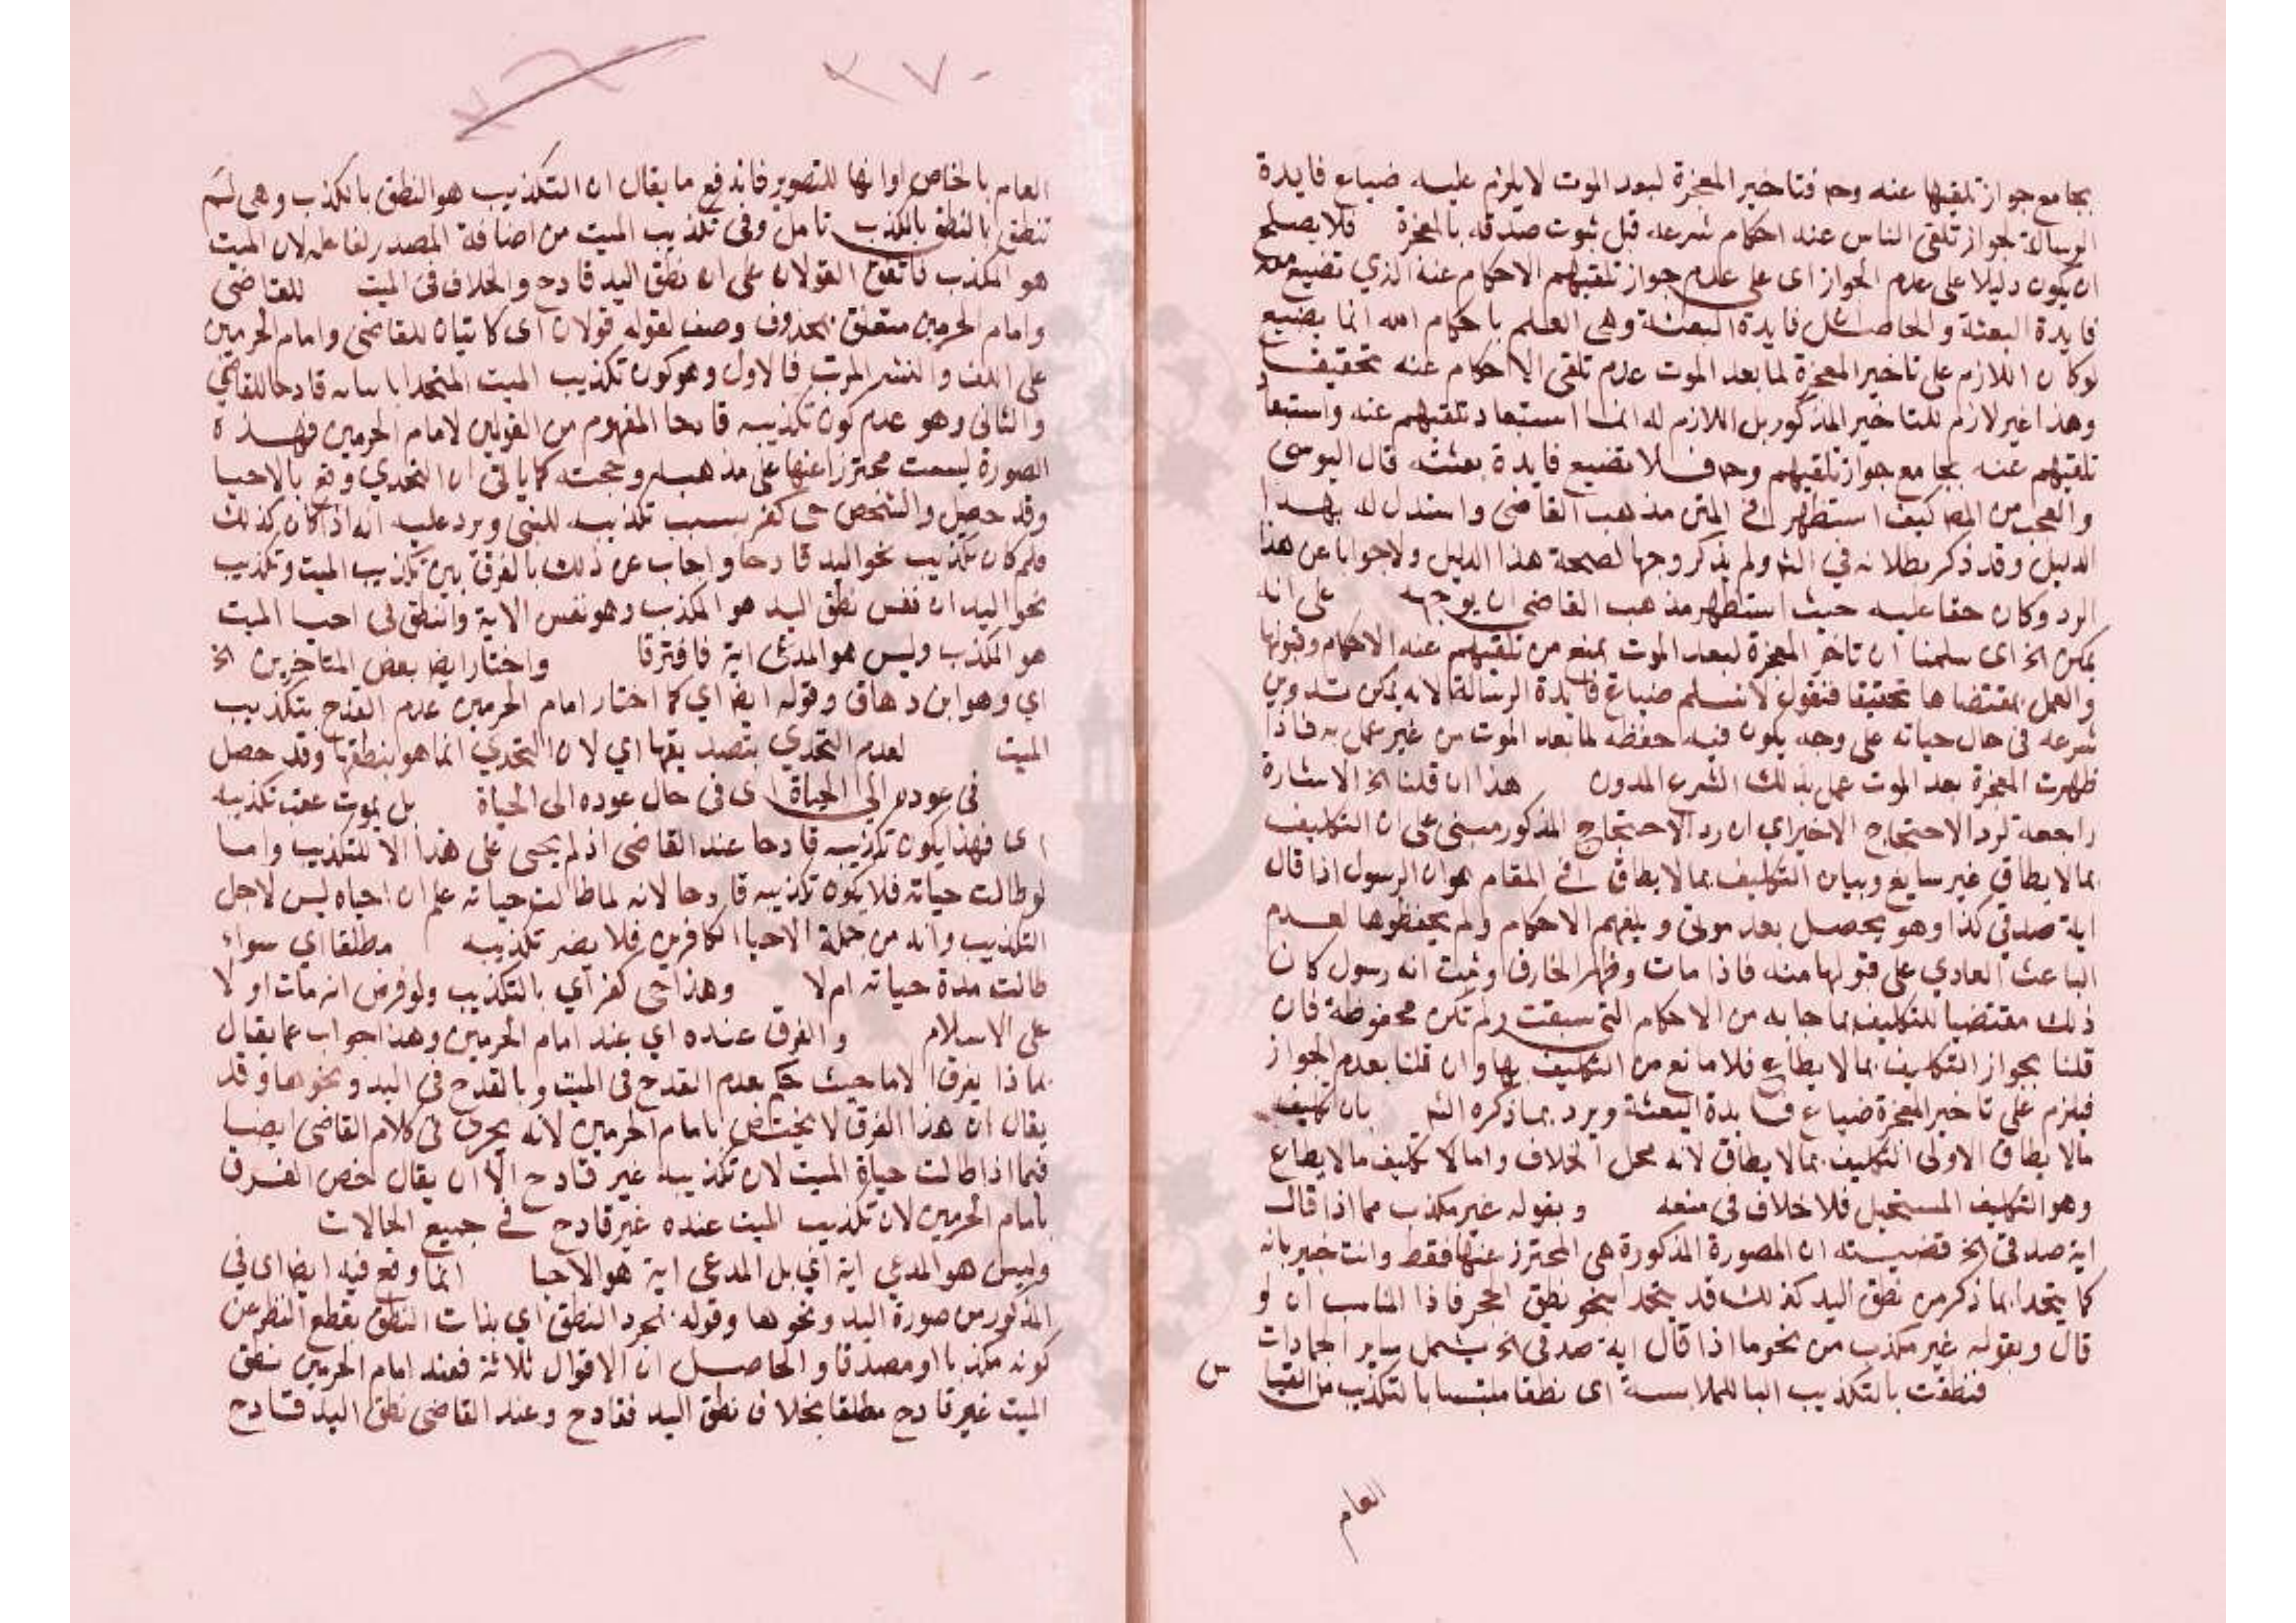 بجامع جواز تلقيها عنه وح فتاخير المعجزة لبعد الموت لا يلزم عليه ضياع فايدة
الرسالة لجواز تلقى الناس عنه احكام شرعه قبل ثبوت صدقه بالمعجزة فلا يصلح
ان يكون دليلا على عدم الجواز اى على عدم جواز تلقيهم الاحكام عنه الذي تضيع معه
فايدة البعثة والحاصل ان فايدة البعثة وهى العلم باحكام الله انما يضيع
لو كان اللازم على تاخير المعجزة لما بعد الموت عدم تلقى الاحكام عنه تحقيقا
وهذا غير لازم للتاخير المذكور بل اللازم له انما استبعاد تلقيهم عنه واستبعاد
تلقيهم عنه يجامع جواز تلقيهم وح فلا تضيع فايدة بعثته قال اليوسى
والعجب من المص كيف استظهر فى المتن مذهب القاضى واستدل له بهذا
الدليل وقد ذكر بطلانه في الشم ولم يذكر وجها لصحة هذا الدليل ولا جوابا عن هذا
الرد وكان حقا عليه حيث استظهر مذهب القاضى ان يوجهه على انه
يمكن الخ اى سلمنا ان تاخر المعجزة لبعد الموت يمنع من تلقيهم عنه الاحكام وقبولها
والعمل بمقتضاها تحقيقا فنقول لا نسلم ضياع فايدة الرسالة لانه يمكن تدوين
شرعه فى حال حياته على وجه يكون فيه حفظه لما بعد الموت من غير عمل به فاذا
ظهرت المعجزة بعد الموت عمل بذلك الشرع المدون هذا ان قلنا الخ الاشارة
راجعه لرد الاحتجاج الاخير اي ان رد الاحتجاج المذكور مبنى على ان التكليف
بما لا يطاق غير سايغ وبيان التكليف بما لا يطاق فى المقام هو ان الرسول اذا قال
اية صدقى كذا وهو يحصل بعد موتى وبلغهم الاحكام ولم يحفظوها لعدم
الباعث العادي على قبولها منه فاذا مات وظهر الخارق وثبت انه رسول كان
ذلك مقتضيا للتكليف بما جا به من الاحكام التى سبقت ولم تكن محفوظة فان
قلنا بجواز التكليف بما لا يطاع فلا مانع من التكليف بها وان قلنا بعدم الجواز
فيلزم على تاخير المعجزة ضياع فايدة البعثة ويرد بما ذكره الشم بان تكليف
مالا يطاق الاولى التكليف بما لا يطاق لانه محل الخلاف واما لا تكليف ما لا يطاع
وهو التكليف المستحيل فلا خلاف فى منعه وبقوله غير مكذب مما اذا قال
اية صدقى الخ قضيته ان الصورة المذكورة هى المحترز عنها فقط وانت خبير بانه
كما يتحدا بما ذكر من نطق اليد كذلك قد يتحدا بنحو نطق الحجر فاذا المناسب ان لو
قال وبقوله غير مكذب من نحو ما اذا قال اية صدقى الخ يشمل ساير الجمادات
فنطقت بالتكذيب البا للملابسة اى نطقا ملتبسا بالتكذيب من التباس
العام
٢٧٠
العام بالخاص او انها للتصوير فاندفع ما يقال ان التكذيب هو النطق بالكذب وهى لم
تنطق بالنطق بالكذب تامل وفى تكذيب الميت من اضافة المصدر لفاعله لان الميت
هو المكذب فاتفق القولان على ان نطق اليد قادح والخلاف فى الميت للقاضى
وامام الحرمين متعلق بمحذوف وصف لقوله قولان اى كاينان للقاضى وامام الحرمين
على اللف والنشر المرتب فالاول وهو كون تكذيب الميت المتحدا باحيائه قادحا للقاضى
والثانى وهو عدم كون تكذيبه قادحا المفهوم من القولين لامام الحرمين فهذه
الصورة ليست محترزا عنها على مذهبه وحجته كما ياتى ان التحدي وقع بالاحيا
وقد حصل والشخص حى كفر بسبب تكذيبه للنبى ويرد عليه انه اذا كان كذلك
فلم كان تكذيب نحو اليد قادحا واجاب عن ذلك بالفرق بين تكذيب الميت وتكذيب
نحو اليد ان نفس نطق اليد هو المكذب وهو نفس الاية والنطق فى احيا الميت
هو المكذب وليس هو المدعى اية فافترقا واختار ايضا بعض المتاخرين الخ
اي وهو ابن دهاق وقوله ايضا اي كما اختار امام الحرمين عدم القدح بتكذيب
الميت لعدم التحدي بتصديقها اي لان التحدي انما هو بنطقها وقد حصل
فى عوده الى الحياة اى فى حال عوده الى الحياة بل يموت عقب تكذيبه
اى فهذا يكون تكذيبه قادحا عند القاضى اذ لم يحيى على هذا الا للتكذيب واما
لو طالت حياته فلا يكون تكذيبه قادحا لانه لما طالت حياته علم ان احياه ليس لاجل
التكذيب وانه من جملة الاحيا الكافرين فلا يضر تكذيبه مطلقا اي سواء
طالت مدة حياته ام لا وهذا حى كفر اي بالتكذيب ولو فرض انه مات اولا
على الاسلام والفرق عنده اي عند امام الحرمين وهذا جواب عما يقال
بماذا يفرق الامام حيث حكم بعدم القدح فى الميت وبالقدح فى اليد ونحوها وقد
يقال ان هذا الفرق لا يختص بامام الحرمين لانه يجرى فى كلام القاضى ايضا
فيما اذا طالت حياة الميت لان تكذيبه غير قادح الا ان يقال خص الفرق
بامام الحرمين لان تكذيب الميت عنده غير قادح فى جميع الحالات
وليس هو المدعي اية اي بل المدعى اية هو الاحيا انما وقع فيه ايضا اى في
المذكور من صورة اليد ونحوها وقوله بمجرد النطق اي بذات النطق بقطع النظر عن
كونه مكذبا او مصدقا والحاصل ان الاقوال ثلاثة فعند امام الحرمين نطق
الميت غير قادح مطلقا بخلاف نطق اليد فقادح وعند القاضى نطق اليد قادح